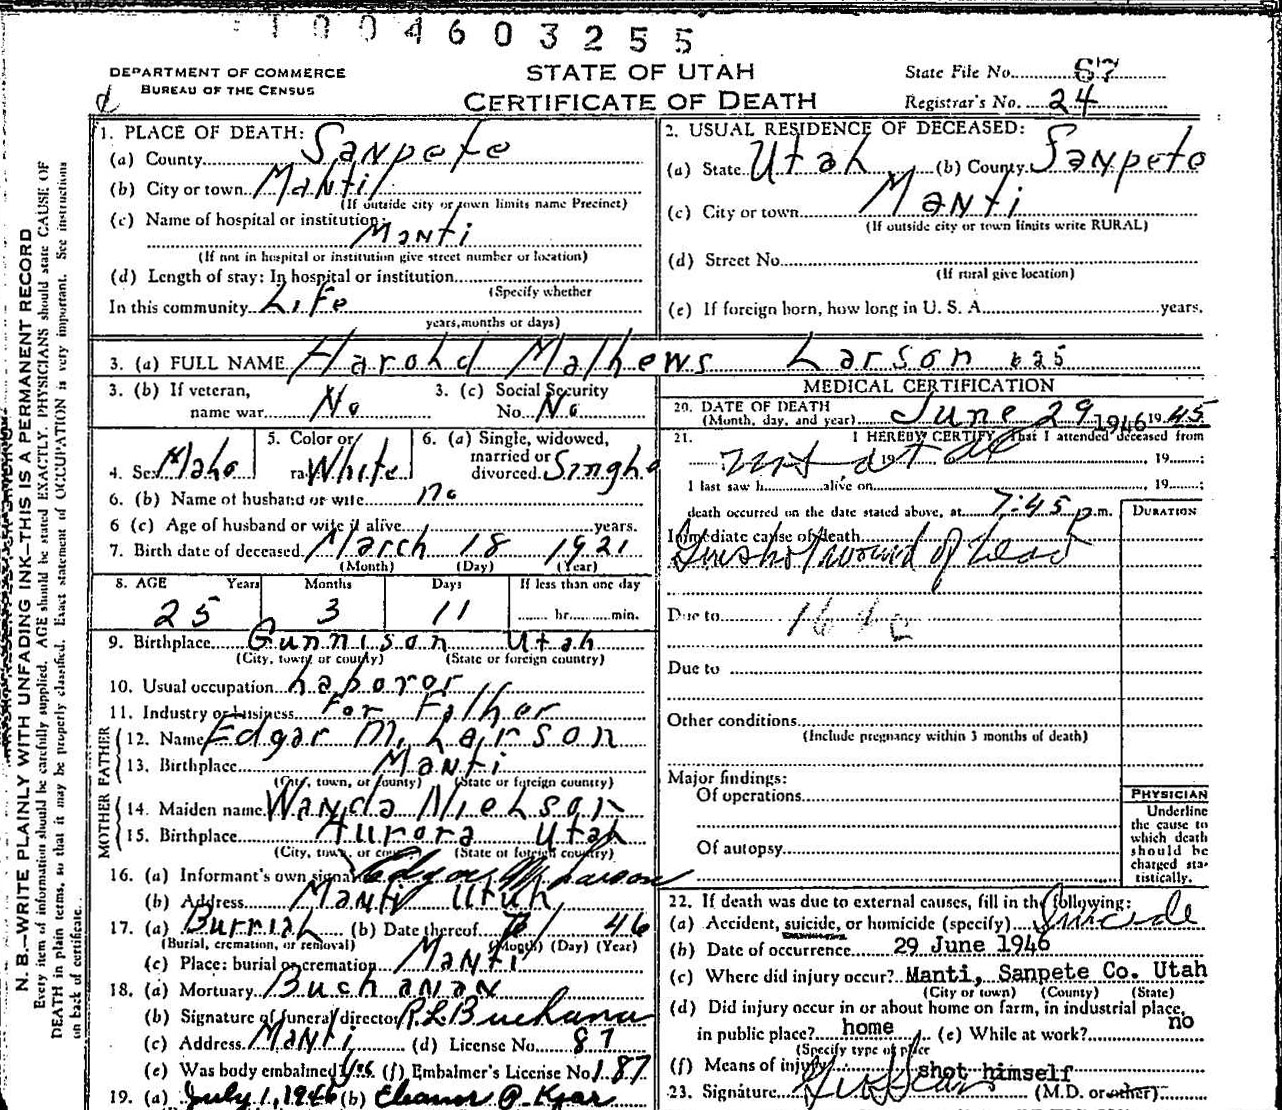 1004603255
DEPARTMENT OF COMMERCE
BUREAU OF THE CENSUS
STATE OF UTAH
CERTIFICATE OF DEATH
State File No. 67
Registrar's No. 24
N. B.—WRITE PLAINLY WITH UNFADING INK—THIS IS A PERMANENT RECORD
Every item of information should be carefully supplied. AGE should be stated EXACTLY. PHYSICIANS should state CAUSE OF
DEATH in plain terms, so that it may be properly classified. Exact statement of OCCUPATION is very important. See instructions
on back of certificate.
1. PLACE OF DEATH:
(a) County Sanpete
(b) City or town Manti
(If outside city or town limits name Precinct)
(c) Name of hospital or institution:
Manti
(If not in hospital or institution give street number or location)
(d) Length of stay: In hospital or institution
(Specify whether
In this community Life
years, months or days)
2. USUAL RESIDENCE OF DECEASED:
(a) State Utah (b) County Sanpete
(c) City or town Manti
(If outside city or town limits write RURAL)
(d) Street No.
(If rural give location)
(e) If foreign born, how long in U. S. A. years.
3. (a) FULL NAME Harold Mathews Larson 625
3. (b) If veteran,
name war No
3. (c) Social Security
No. No
4. Sex Male
5. Color or
race White
6. (a) Single, widowed,
married or
divorced. Single
6. (b) Name of husband or wife no
6 (c) Age of husband or wife if alive years.
7. Birth date of deceased March 18 1921
(Month) (Day) (Year)
8. AGE Years Months Days If less than one day
25 3 11 hr. min.
9. Birthplace Gunnison Utah
(City, town, or county) (State or foreign country)
10. Usual occupation Laboror
11. Industry or business For Father
FATHER
12. Name Edgar M. Larson
13. Birthplace Manti
(City, town, or county) (State or foreign country)
MOTHER
14. Maiden name Wanda Nielson
15. Birthplace Aurora Utah
(City, town, or county) (State or foreign country)
16. (a) Informant's own signature Edgar M Larson
(b) Address Manti Utah
17. (a) Burrial (b) Date thereof 46
(Burial, cremation, or removal) (Month) (Day) (Year)
(c) Place: burial or cremation Manti
18. (a) Mortuary Buchanan
(b) Signature of funeral director R.L. Buchanan
(c) Address Manti (d) License No. 87
(e) Was body embalmed yes (f) Embalmer's License No. 187
19. (a) July 1, 1946 (b) Eleanor P. Kjar
MEDICAL CERTIFICATION
20. DATE OF DEATH
(Month, day, and year) June 29 1946 1945
21. I HEREBY CERTIFY, That I attended deceased from
not at all 19 , 19 ;
I last saw h alive on , 19 ;
death occurred on the date stated above, at 7:45 P.m.
DURATION
Immediate cause of death
Gunshot wound of head
Due to
Due to
Other conditions
(Include pregnancy within 3 months of death)
Major findings:
Of operations
Of autopsy
PHYSICIAN
Underline
the cause to
which death
should be
charged sta-
tistically.
22. If death was due to external causes, fill in the following:
(a) Accident, suicide, or homicide (specify) Suicide
(b) Date of occurrence 29 June 1946
(c) Where did injury occur? Manti, Sanpete Co. Utah
(City or town) (County) (State)
(d) Did injury occur in or about home on farm, in industrial place,
in public place? home (e) While at work? no
(Specify type of place
(f) Means of injury shot himself
23. Signature (M.D. or other)